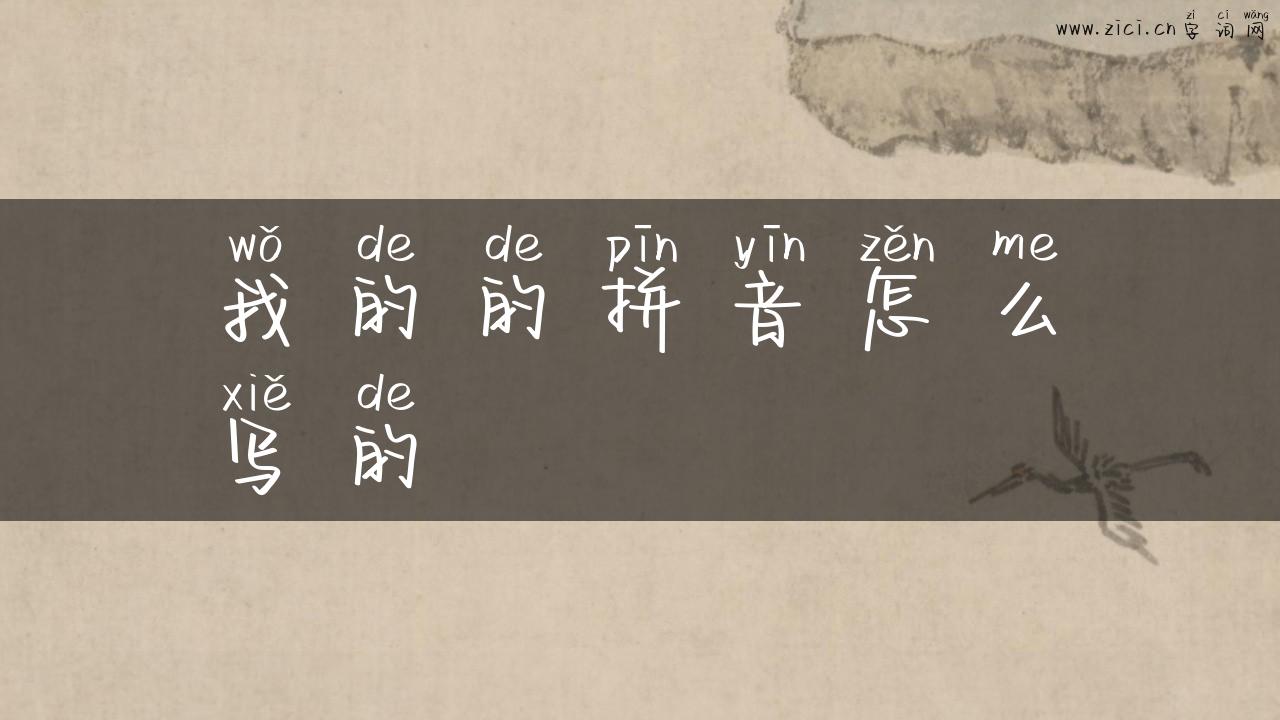 zì cí wǎng
www.zici.cn 字词网
wǒ de de pīn yīn zěn me
我的的拼音怎么
xiě de
写的